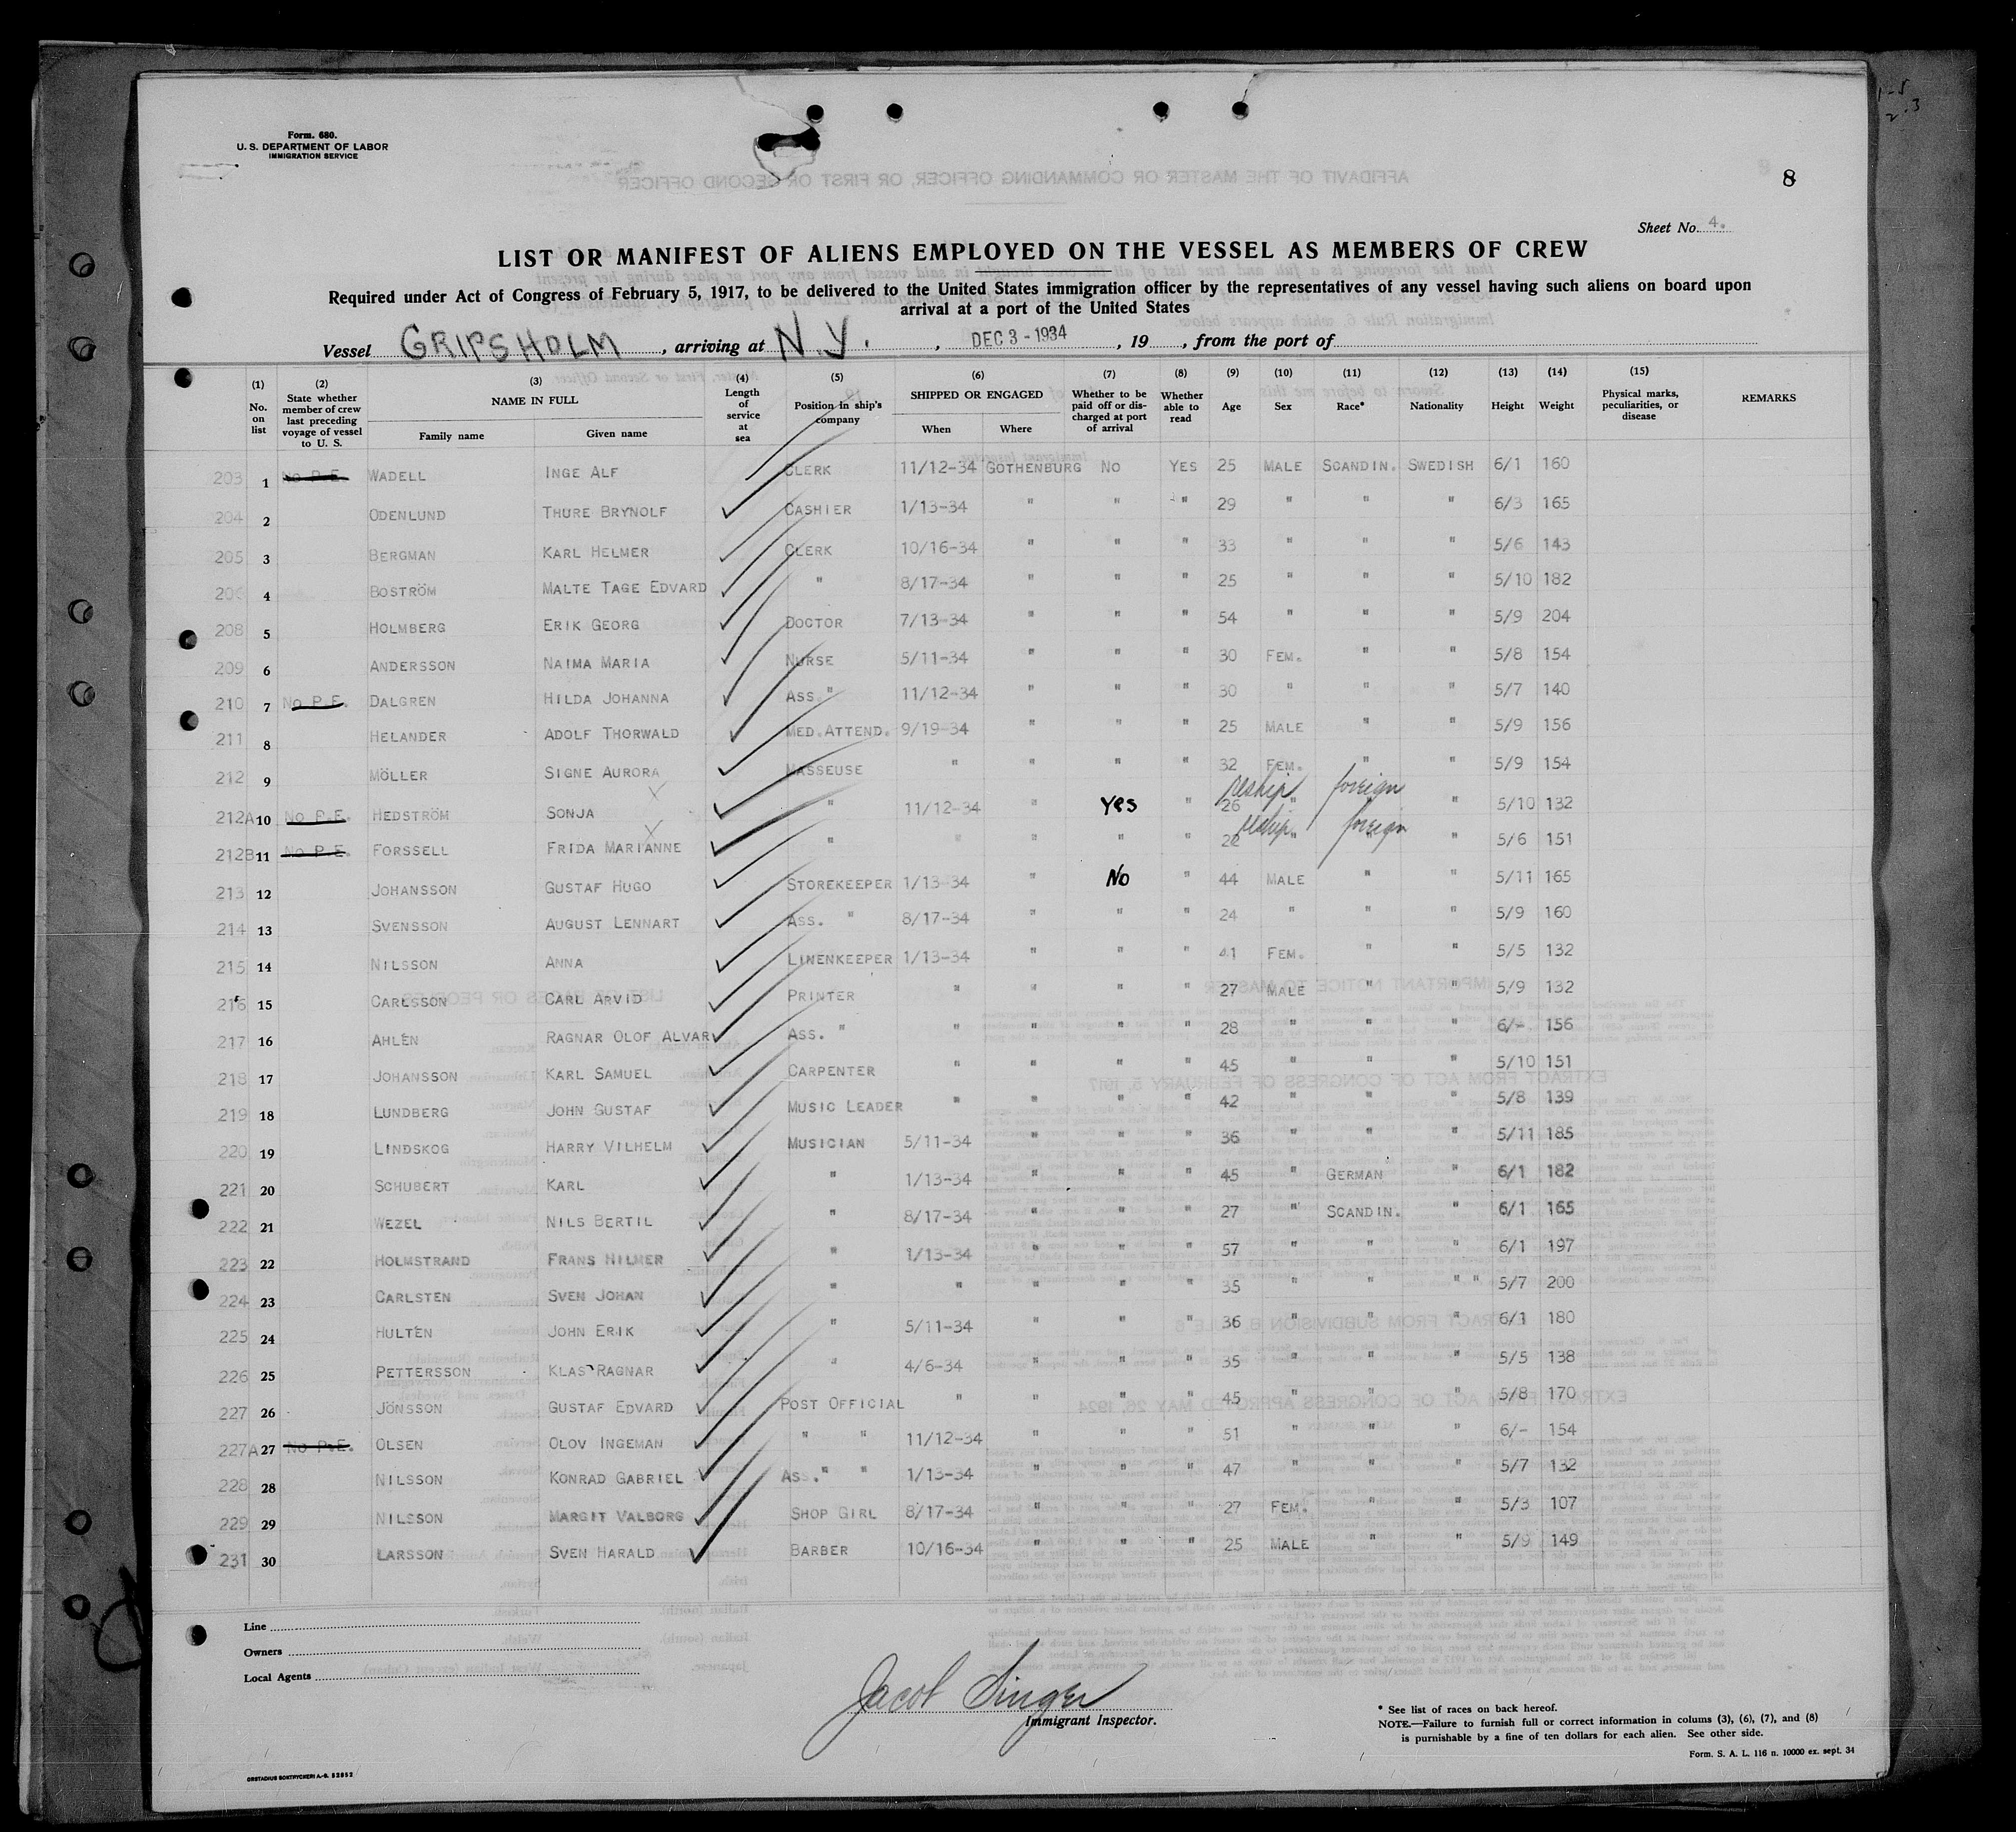 Form. 680.
U. S. DEPARTMENT OF LABOR
IMMIGRATION SERVICE
8
Sheet No. 4.
LIST OR MANIFEST OF ALIENS EMPLOYED ON THE VESSEL AS MEMBERS OF CREW
Required under Act of Congress of February 5, 1917, to be delivered to the United States immigration officer by the representatives of any vessel having such aliens on board upon
arrival at a port of the United States
Vessel GRIPSHOLM, arriving at N.Y., DEC 3 - 1934, 19 , from the port of
(1) No. on list (2) State whether member of crew last preceding voyage of vessel to U. S. (3) NAME IN FULL Family name Given name (4) Length of service at sea (5) Position in ship's company (6) SHIPPED OR ENGAGED When Where (7) Whether to be paid off or discharged at port of arrival (8) Whether able to read (9) Age (10) Sex (11) Race* (12) Nationality (13) Height (14) Weight (15) Physical marks, peculiarities, or disease REMARKS
203 1 No P.E. WADELL INGE ALF CLERK 11/12-34 GOTHENBURG NO YES 25 MALE SCANDIN. SWEDISH 6/1 160
204 2 ODENLUND THURE BRYNOLF CASHIER 1/13-34 " " " 29 " " " 6/3 165
205 3 BERGMAN KARL HELMER CLERK 10/16-34 " " " 33 " " " 5/6 143
206 4 BOSTRÖM MALTE TAGE EDVARD " 8/17-34 " " " 25 " " " 5/10 182
208 5 HOLMBERG ERIK GEORG DOCTOR 7/13-34 " " " 54 " " " 5/9 204
209 6 ANDERSSON NAIMA MARIA NURSE 5/11-34 " " " 30 FEM. " " 5/8 154
210 7 No P.E. DALGREN HILDA JOHANNA ASS. " 11/12-34 " " " 30 " " " 5/7 140
211 8 HELANDER ADOLF THORWALD MED. ATTEND. 9/19-34 " " " 25 MALE " " 5/9 156
212 9 MÖLLER SIGNE AURORA MASSEUSE " " " " 32 FEM. " " 5/9 154
212A 10 No P.E. HEDSTRÖM SONJA " 11/12-34 " Yes " 26 " reship foreign " 5/10 132
212B 11 No P.E. FORSSELL FRIDA MARIANNE " " " " " 22 " reship foreign " " 5/6 151
213 12 JOHANSSON GUSTAF HUGO STOREKEEPER 1/13-34 " No " 44 MALE " " 5/11 165
214 13 SVENSSON AUGUST LENNART ASS. " 8/17-34 " " " 24 " " " 5/9 160
215 14 NILSSON ANNA LINENKEEPER 1/13-34 " " " 41 FEM. " " 5/5 132
216 15 CARLSSON CARL ARVID PRINTER " " " " 27 MALE " " 5/9 132
217 16 AHLÉN RAGNAR OLOF ALVAR ASS. " " " " " 28 " " " 6/- 156
218 17 JOHANSSON KARL SAMUEL CARPENTER " " " " 45 " " " 5/10 151
219 18 LUNDBERG JOHN GUSTAF MUSIC LEADER " " " " 42 " " " 5/8 139
220 19 LINDSKOG HARRY VILHELM MUSICIAN 5/11-34 " " " 36 " " " 5/11 185
221 20 SCHUBERT KARL " 1/13-34 " " " 45 " GERMAN " 6/1 182
222 21 WEZEL NILS BERTIL " 8/17-34 " " " 27 " SCANDIN. " 6/1 165
223 22 HOLMSTRAND FRANS HILMER " 1/13-34 " " " 57 " " " 6/1 197
224 23 CARLSTEN SVEN JOHAN " " " " " 35 " " " " 5/7 200
225 24 HULTÉN JOHN ERIK " 5/11-34 " " " 36 " " " 6/1 180
226 25 PETTERSSON KLAS RAGNAR " 4/6-34 " " " 35 " " " 5/5 138
227 26 JÖNSSON GUSTAF EDVARD POST OFFICIAL " " " " 45 " " " 5/8 170
227A 27 No P.E. OLSEN OLOV INGEMAN " " 11/12-34 " " " 51 " " " 6/- 154
228 28 NILSSON KONRAD GABRIEL ASS. " " 1/13-34 " " " 47 " " " 5/7 132
229 29 NILSSON MARGIT VALBORG SHOP GIRL 8/17-34 " " " 27 FEM. " " 5/3 107
231 30 LARSSON SVEN HARALD BARBER 10/16-34 " " " 25 MALE " " 5/9 149
Line
Owners
Local Agents
Jacob Singer
Immigrant Inspector.
* See list of races on back hereof.
NOTE.—Failure to furnish full or correct information in colums (3), (6), (7), and (8)
is purnishable by a fine of ten dollars for each alien. See other side.
Form. S. A. L. 116 n. 10000 ex. sept. 34